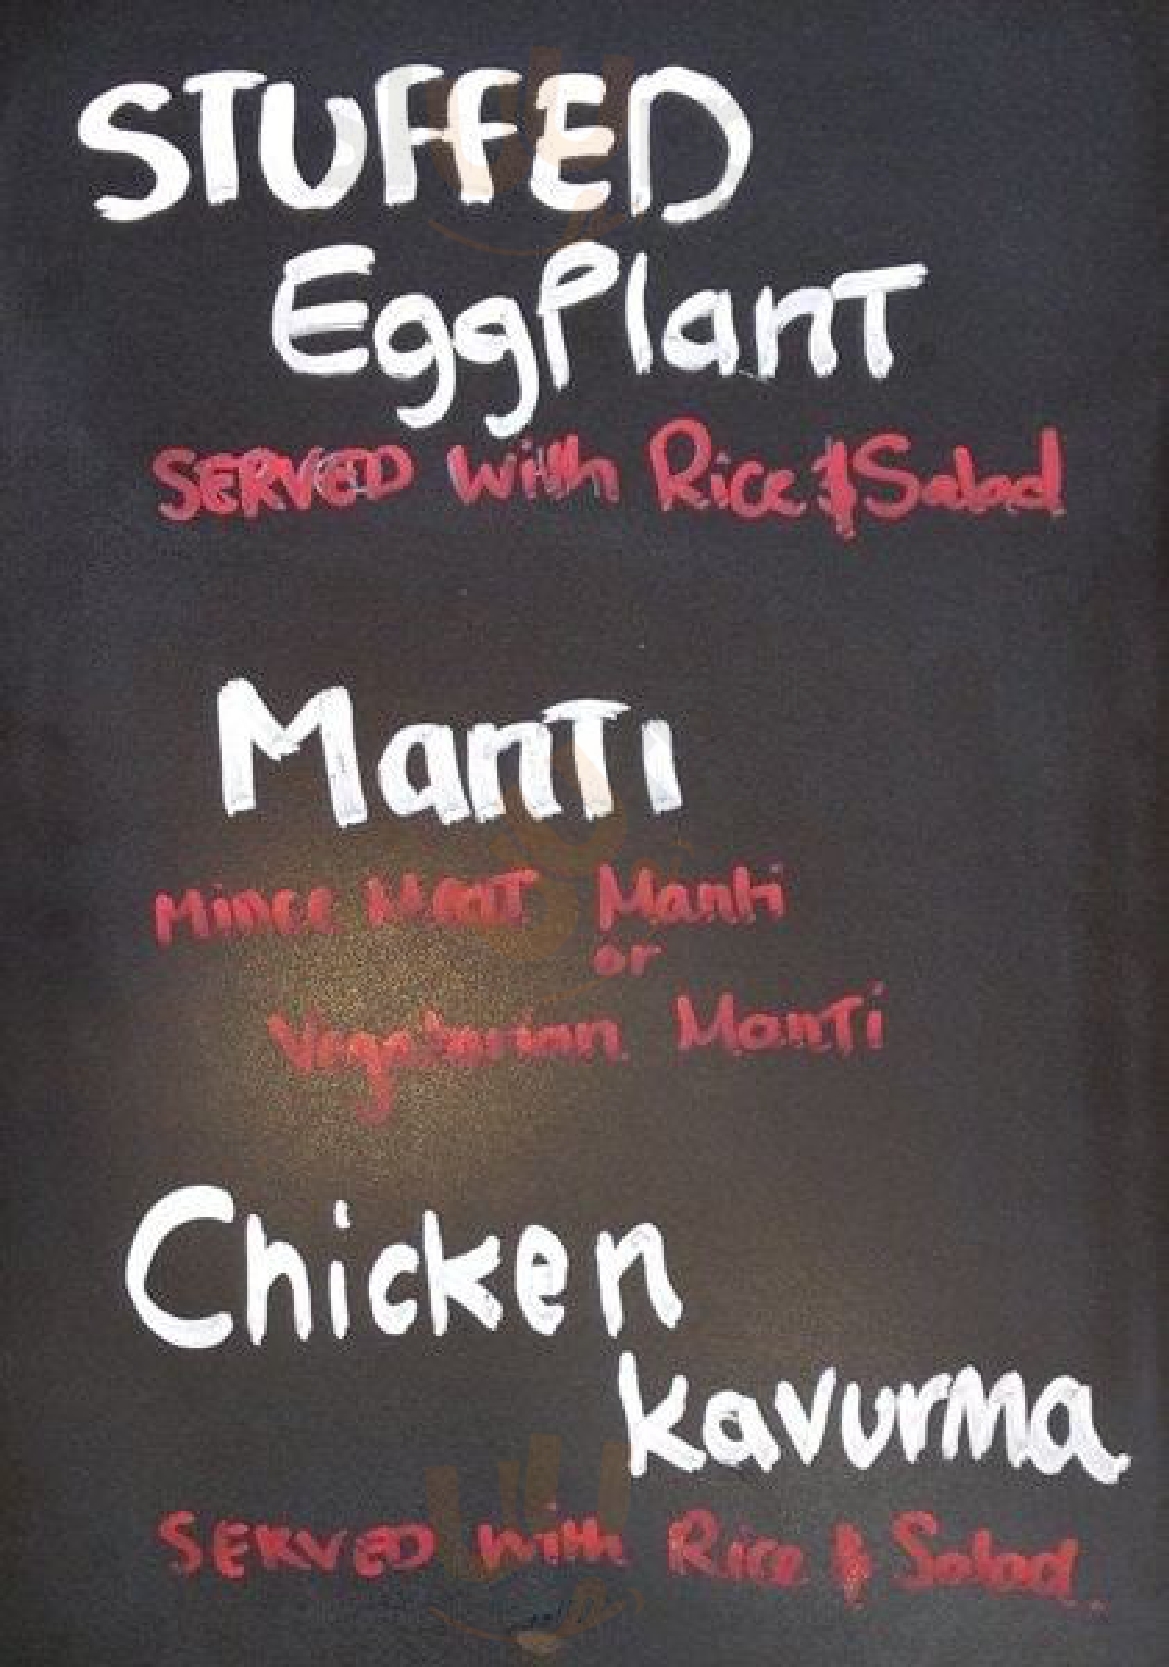 STUFFED
EggPlant
SERVED with Rice & Salad
Manti
Mince Meat Manti
or
Vegetarian Manti
Chicken
kavurma
SERVED with Rice & Salad.